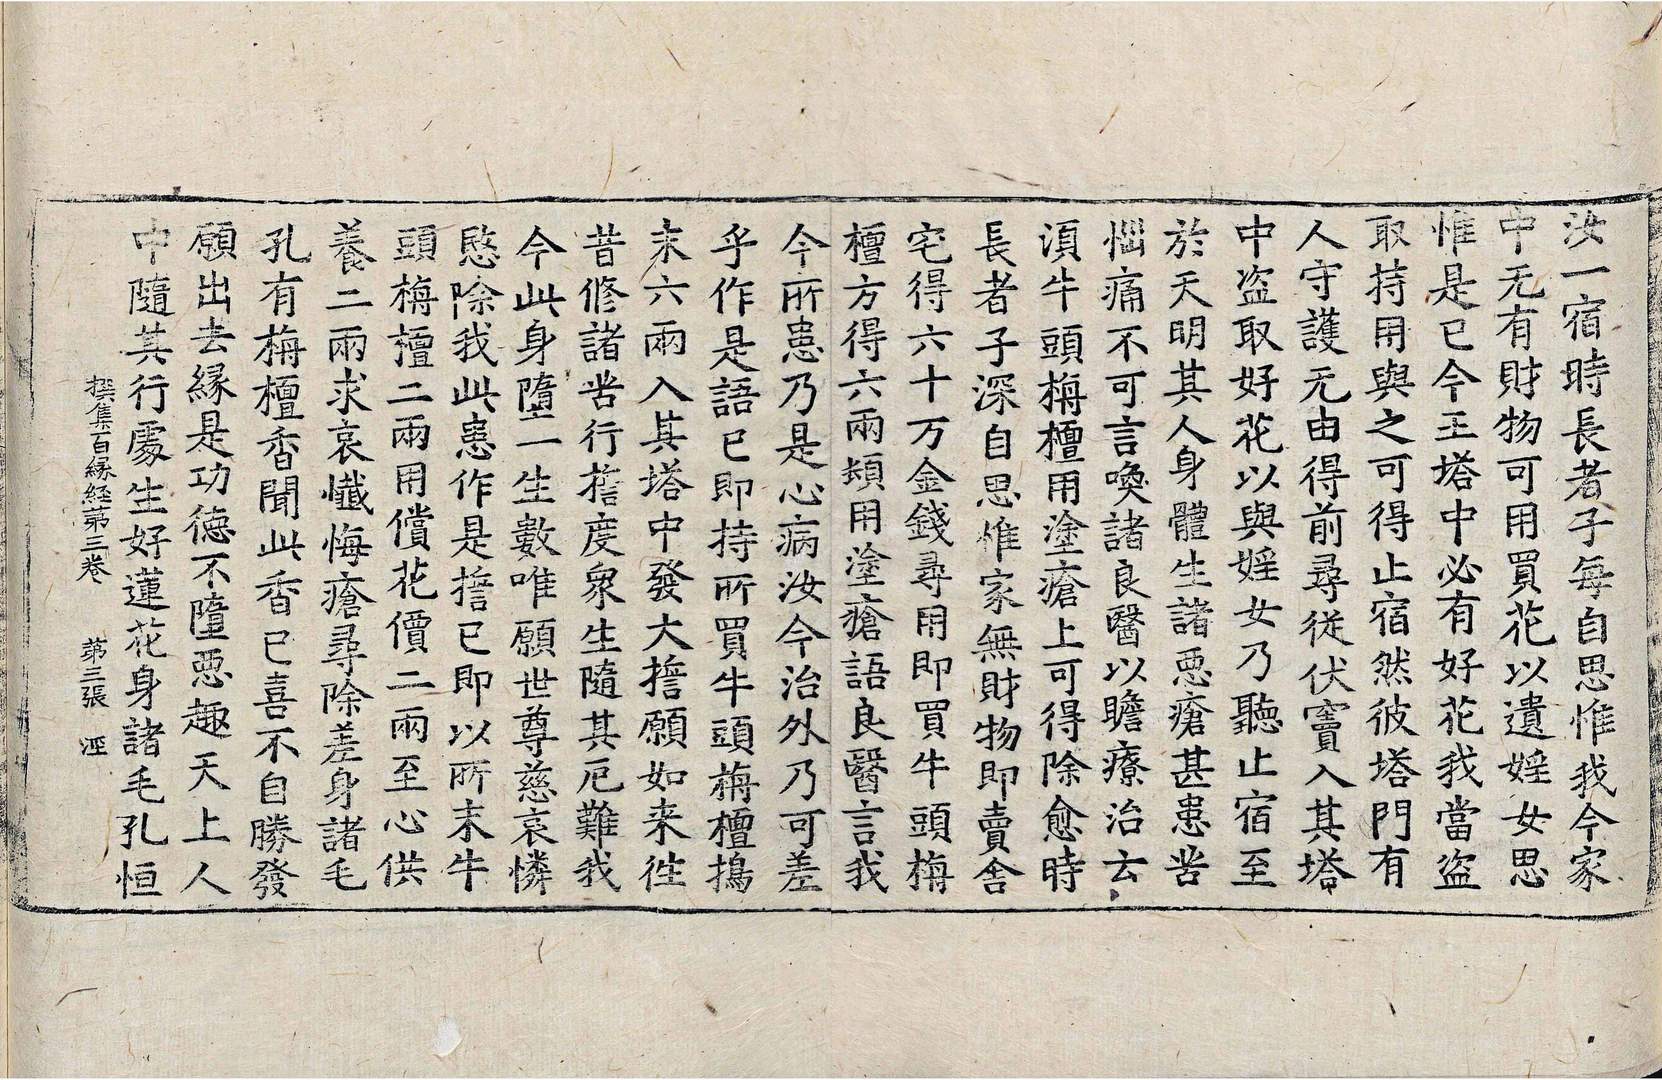 汝一宿時長者子每自思惟我今家
中无有財物可用買花以遺婬女思
惟是已今王塔中必有好花我當盜
取持用與之可得止宿然彼塔門有
人守護无由得前尋從伏竇入其塔
中盜取好花以與婬女乃聽止宿至
於天明其人身體生諸惡瘡甚患苦
惱痛不可言喚諸良醫以瞻療治云
須牛頭栴檀用塗瘡上可得除愈時
長者子深自思惟家無財物即賣舍
宅得六十万金錢尋用即買牛頭栴
檀方得六兩煩用塗瘡語良醫言我
今所患乃是心病汝今治外乃可差
乎作是語已即持所買牛頭栴檀搗
末六兩入其塔中發大擔願如来往
昔修諸苦行擔度衆生隨其厄難我
今此身墮一生數唯願世尊慈哀憐
愍除我此患作是擔已即以所末牛
頭栴檀二兩用償花價二兩至心供
養二兩求哀懺悔瘡尋除差身諸毛
孔有栴檀香聞此香已喜不自勝發
願出去縁是功德不墮惡趣天上人
中隨其行處生好蓮花身諸毛孔恒
撰集百縁経苐三卷 苐三張 涇